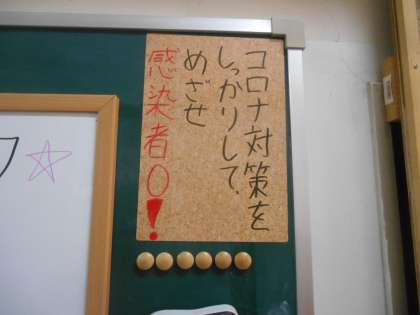 コロナ対策を
しっかりして、
めざせ
感染者0!